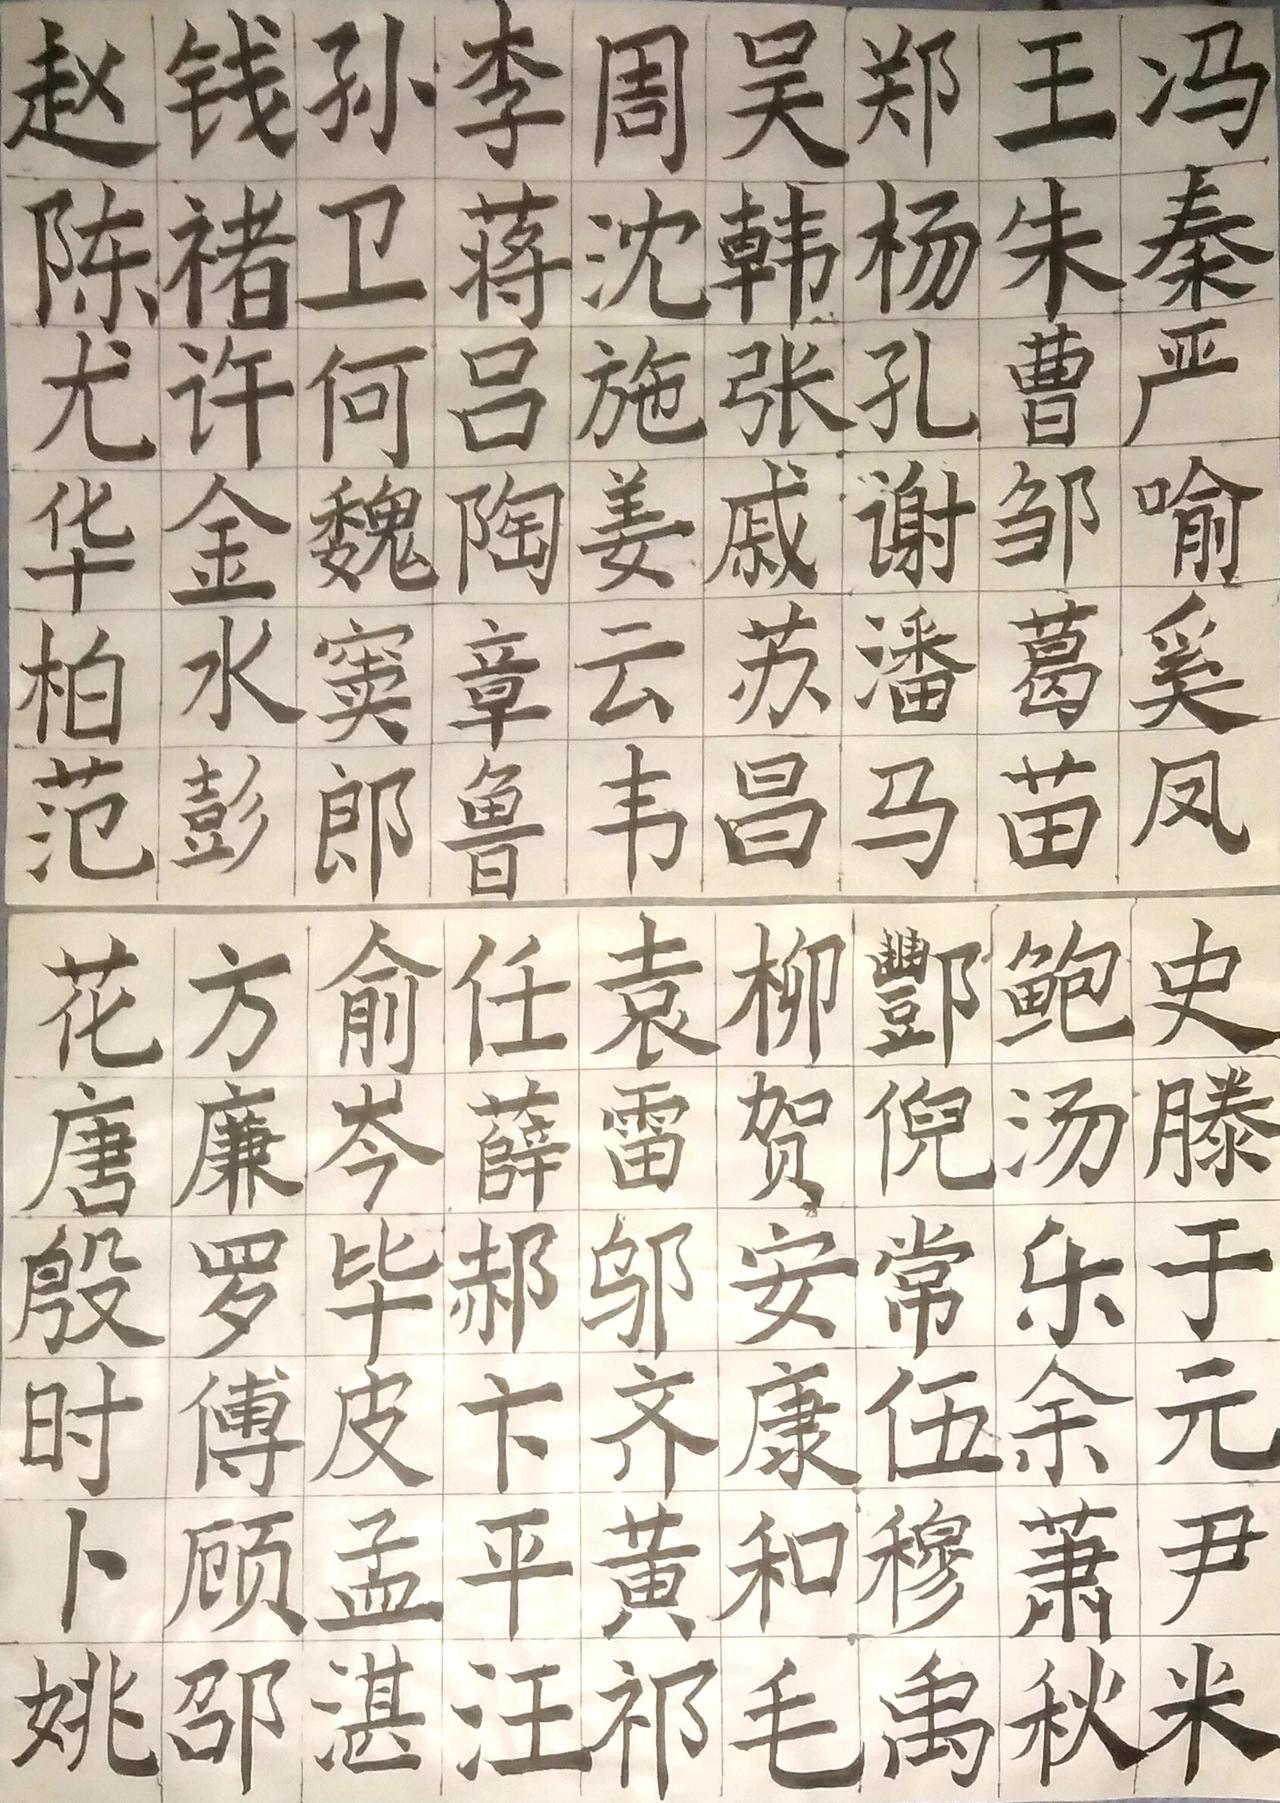 赵钱孙李周吴郑王冯
陈褚卫蒋沈韩杨朱秦
尤许何吕施张孔曹严
华金魏陶姜戚谢邹喻
柏水窦章云苏潘葛奚
范彭郎鲁韦昌马苗凤
花方俞任袁柳酆鲍史
唐廉岑薛雷贺倪汤滕
殷罗毕郝邬安常乐于
时傅皮卞齐康伍余元
卜顾孟平黄和穆萧尹
姚邵湛汪祁毛禹秋米